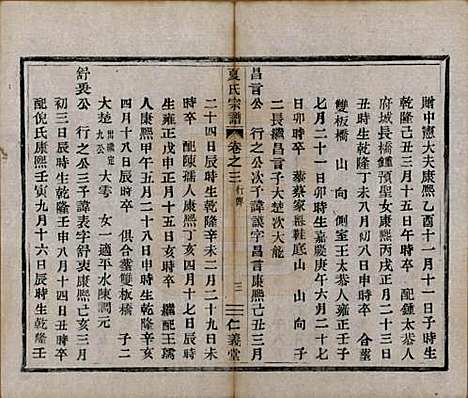 贈中憲大夫康熙乙酉十一月十一日子時生
乾隆三月十五日午時卒　配鍾太恭人
府城長橋鍾預聖女康熙丙戌正月二十三日
丑時生乾隆丁未八月初八日申時卒　合塟
雙板橋　山向　側室王太恭人雍正庚戌
七月二十一日卯時生嘉慶庚午六月二十七
日卯時卒　塟蔡家㙻鞋底山　山向　子
二長繼昌言子大楚次大龍
昌言公　行之公次子諱讓字昌言康熙己丑三月
夏氏宗譜　卷之三　行傳　三　仁義堂
二十四日辰時生乾隆辛未二月二十九日未
時卒　配陳孺人康熙丁亥四月十七日辰時
生雍正戊申五月十五日亥時卒　繼配王孺
人康熙甲午五月二十八日申時生乾隆辛亥
四月十八日辰時卒　俱合塟雙板橋　子二
大楚出繼定九公　大雩　女一適平水陳調元
舒裘公　行之公三子諱表字舒裘康熙己亥三月
初三日辰時生乾隆壬申八月十四日丑時卒
配倪氏康熙壬寅九月十六日辰時生乾隆壬